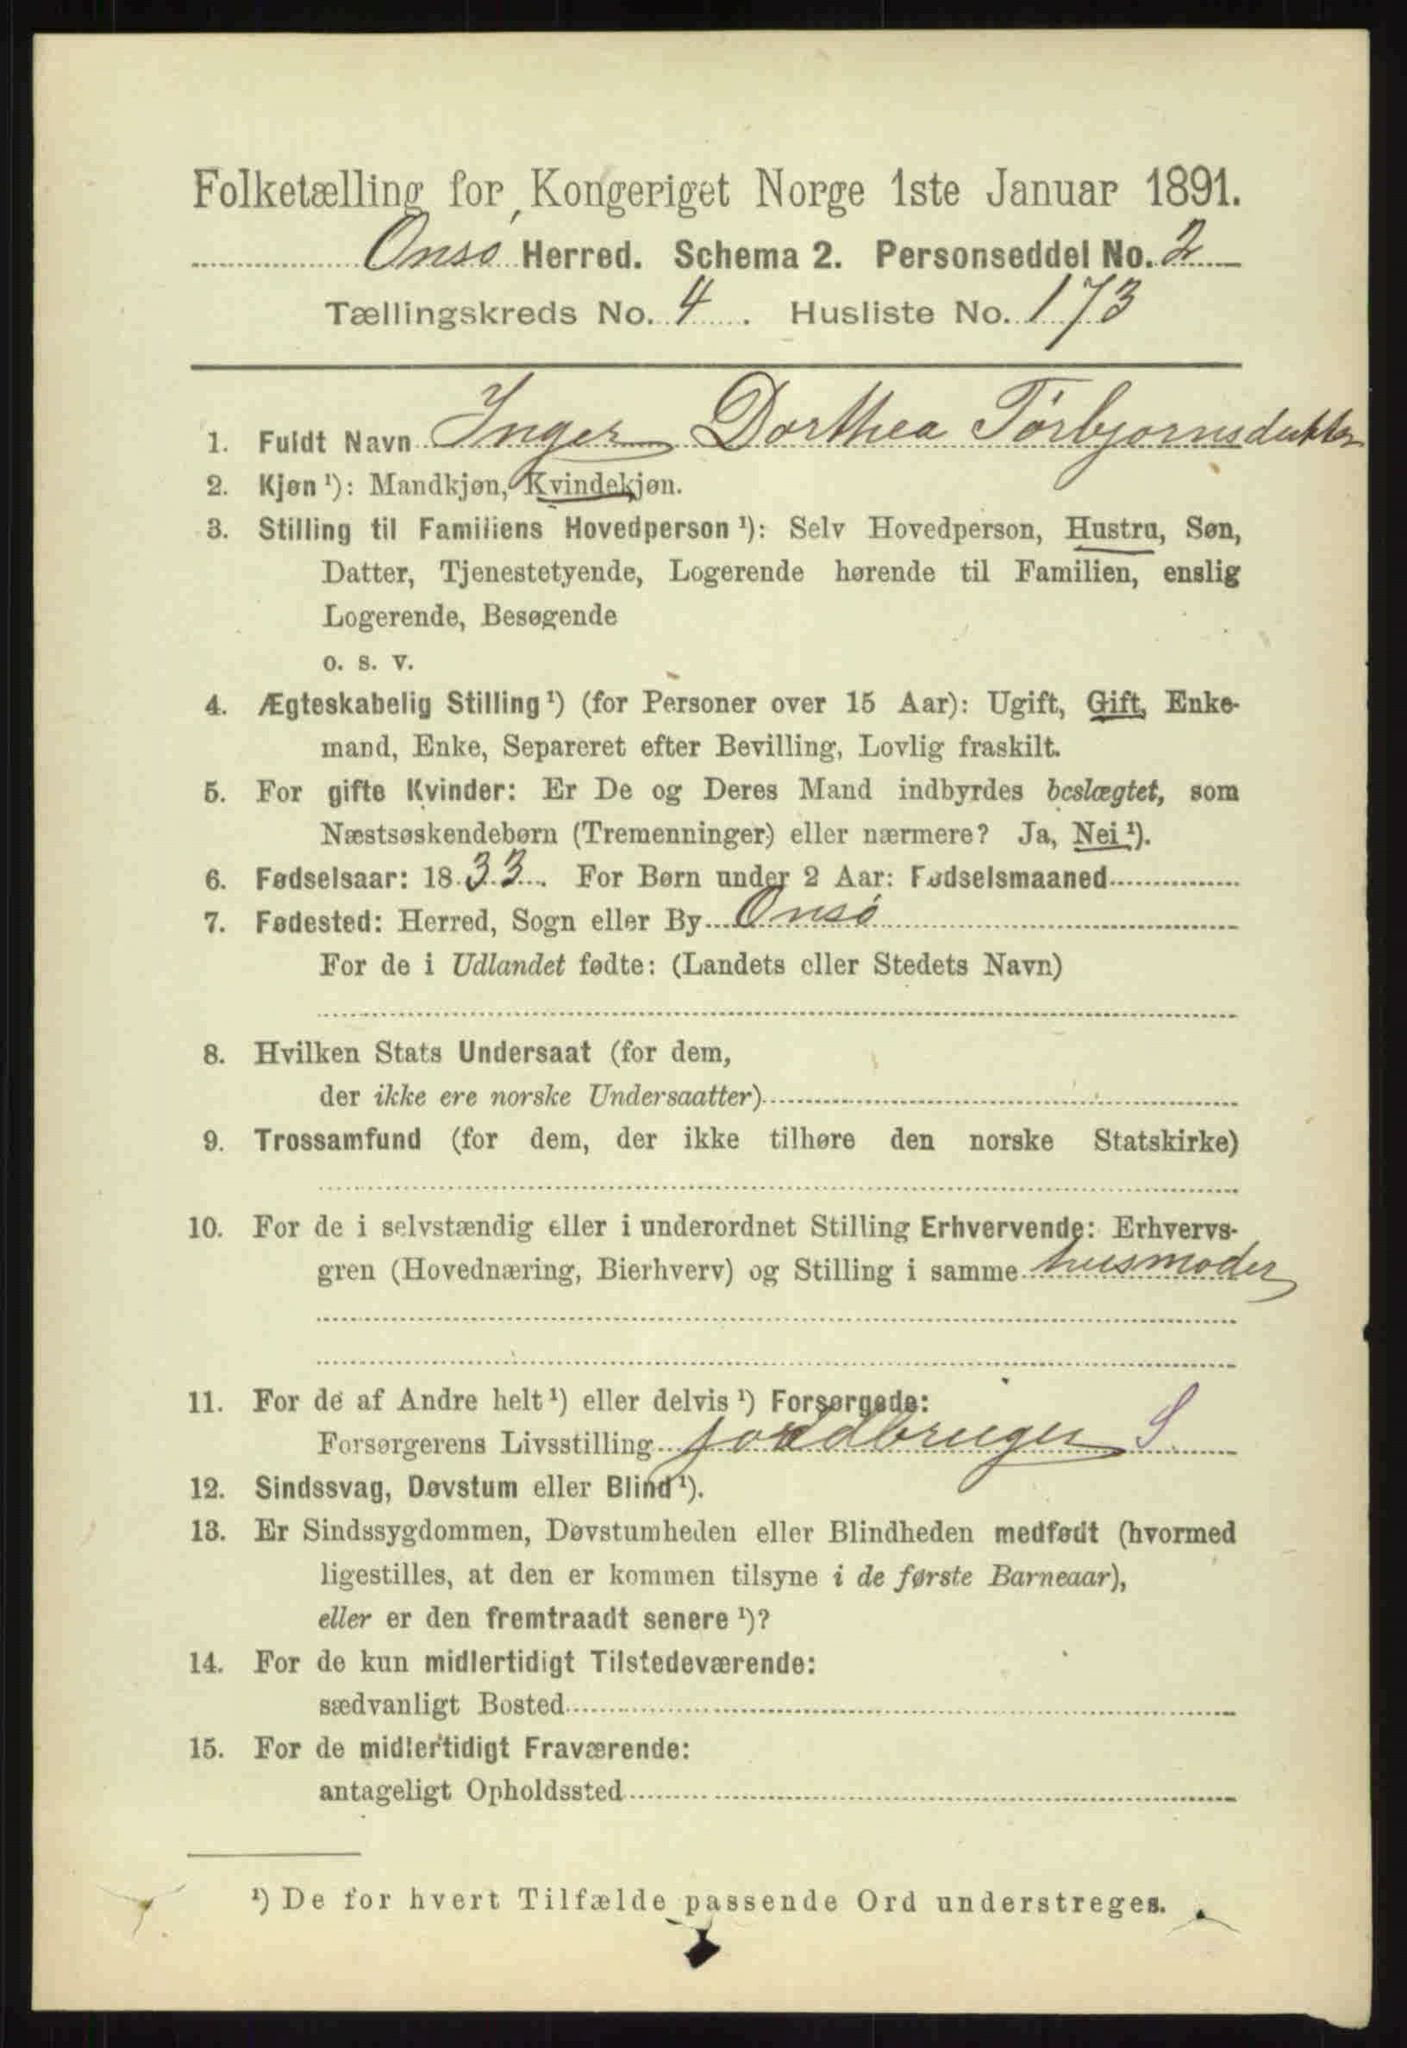 Folketælling for Kongeriget Norge 1ste Januar 1891.
Onsø Herred. Schema 2. Personseddel No. 2
Tællingskreds No. 4. Husliste No. 173
1. Fuldt Navn Inger Dorthea Törbjørnsdatter
2. Kjøn ¹): Mandkjøn, Kvindekjøn.
3. Stilling til Familiens Hovedperson ¹): Selv Hovedperson, Hustru, Søn,
Datter, Tjenestetyende, Logerende hørende til Familien, enslig
Logerende, Besøgende
o. s. v.
4. Ægteskabelig Stilling ¹) (for Personer over 15 Aar): Ugift, Gift, Enke-
mand, Enke, Separeret efter Bevilling, Lovlig fraskilt.
5. For gifte Kvinder: Er De og Deres Mand indbyrdes beslægtet, som
Næstsøskendebørn (Tremenninger) eller nærmere? Ja, Nei ¹).
6. Fødselsaar: 1833. For Børn under 2 Aar: Fødselsmaaned
7. Fødested: Herred, Sogn eller By Onsø
For de i Udlandet fødte: (Landets eller Stedets Navn)
8. Hvilken Stats Undersaat (for dem,
der ikke ere norske Undersaatter)
9. Trossamfund (for dem, der ikke tilhøre den norske Statskirke)
10. For de i selvstændig eller i underordnet Stilling Erhvervende: Erhvervs-
gren (Hovednæring, Bierhverv) og Stilling i samme husmoder
11. For de af Andre helt ¹) eller delvis ¹) Forsørgede:
Forsørgerens Livsstilling jordbruger S
12. Sindssvag, Døvstum eller Blind ¹).
13. Er Sindssygdommen, Døvstumheden eller Blindheden medfødt (hvormed
ligestilles, at den er kommen tilsyne i de første Barneaar),
eller er den fremtraadt senere ¹)?
14. For de kun midlertidigt Tilstedeværende:
sædvanligt Bosted
15. For de midlertidigt Fraværende:
antageligt Opholdssted
¹) De for hvert Tilfælde passende Ord understreges.